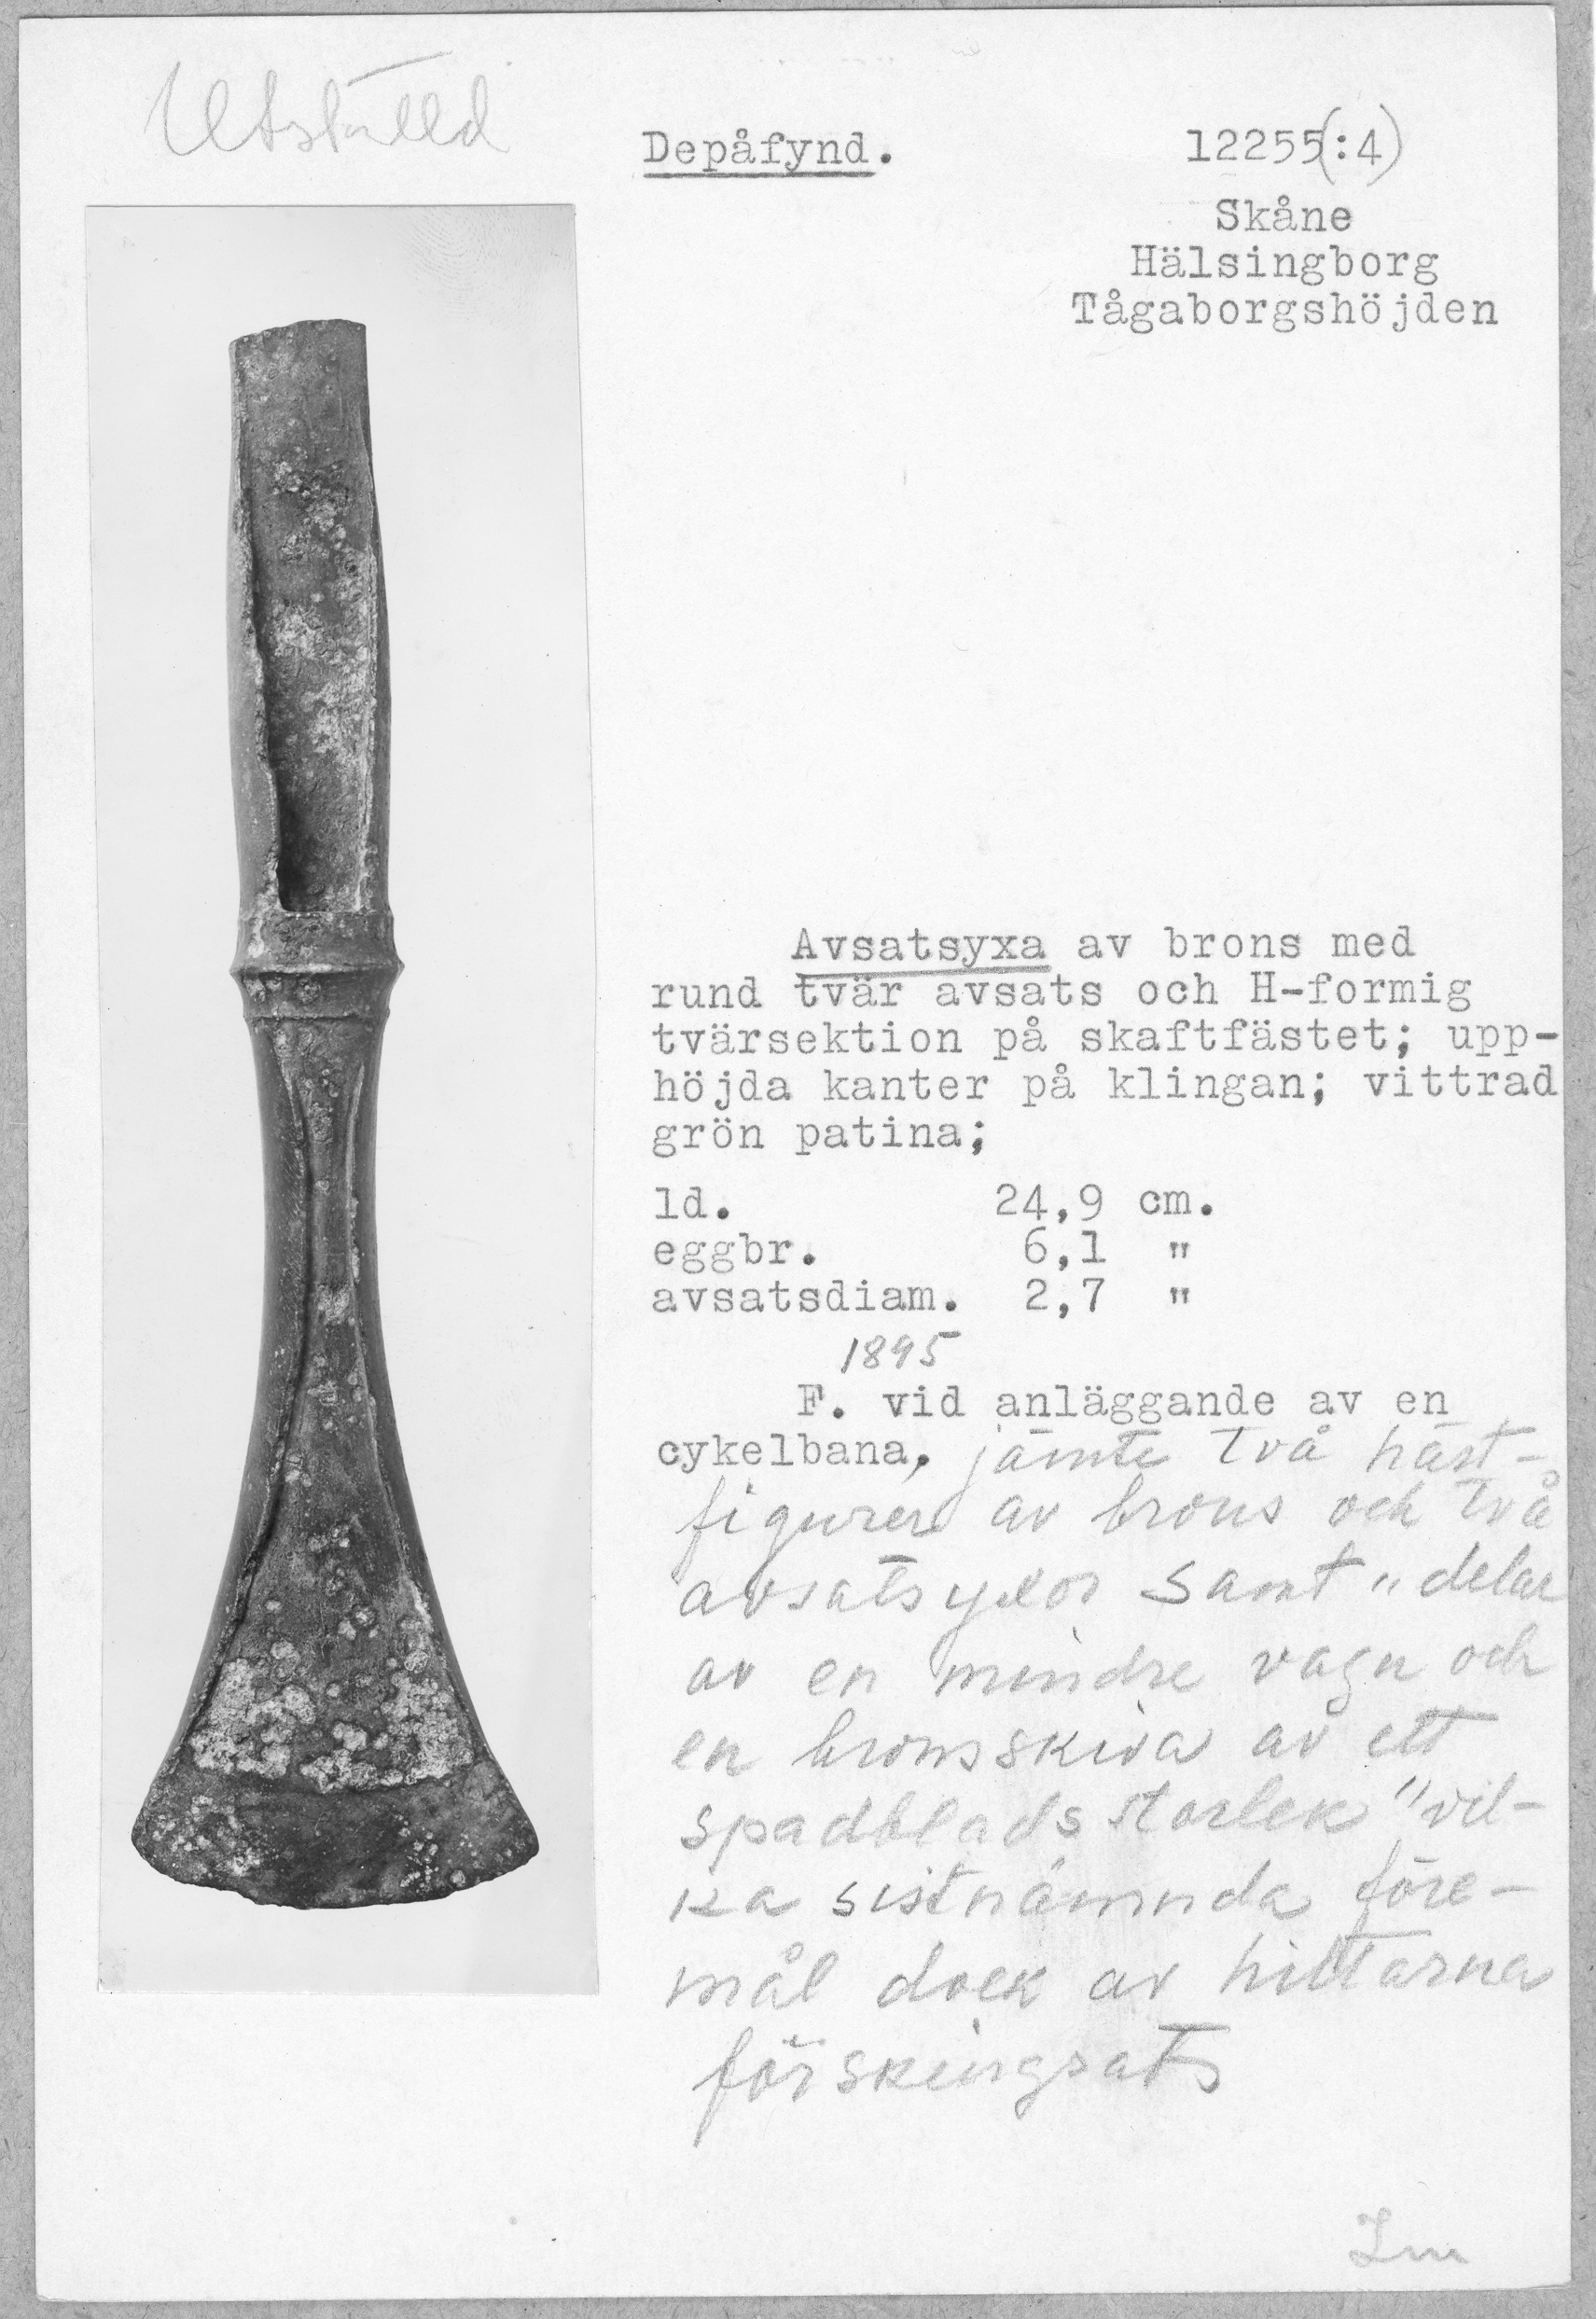 Utställd
Depåfynd.
12255(:4)
Skåne
Hälsingborg
Tågaborgshöjden
Avsatsyxa av brons med
rund tvär avsats och H-formig
tvärsektion på skaftfästet; upp-
höjda kanter på klingan; vittrad
grön patina;
ld. 24,9 cm.
eggbr. 6,1 "
avsatsdiam. 2,7 "
1895
F. vid anläggande av en
cykelbana, jämte två häst-
figurer av brons och två
avsatsyxor samt "delar
av en mindre vagn och
en bronsskiva av ett
spadblads storlek" vil-
ka sistnämnda före-
mål dock av hittarna
förskingrats